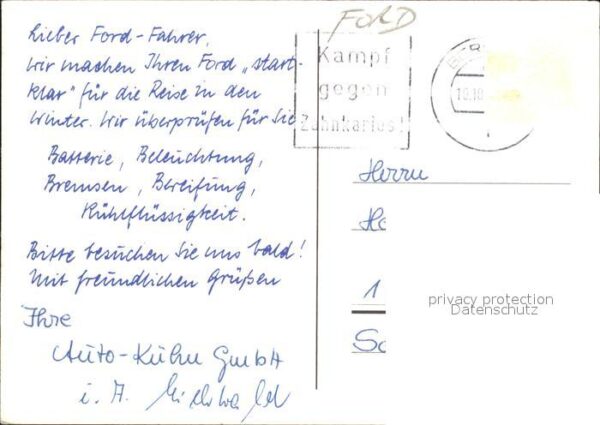 FORD
Lieber Ford-Fahrer,
wir machen Ihren Ford „start-
klar" für die Reise in den
Winter. Wir überprüfen für Sie
Batterie, Beleuchtung,
Bremsen, Bereifung,
Kühlflüssigkeit.
Bitte besuchen Sie uns bald!
Mit freundlichen Grüßen
Ihre
Auto-Kühn GmbH
i. A.
Kampf
gegen
Zahnkaries!
Herrn
1
privacy protection
Datenschutz